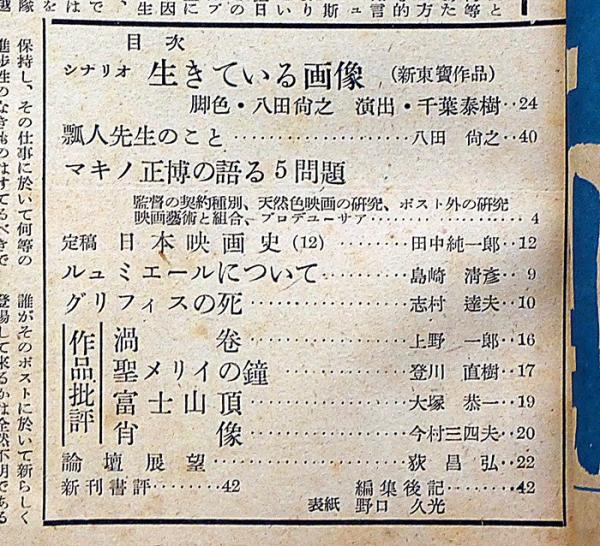 目次
シナリオ 生きている画像 (新東寶作品)
脚色・八田尙之 演出・千葉泰樹‥24
瓢人先生のこと‥‥‥‥‥‥‥八田 尙之‥40
マキノ正博の語る5問題
監督の契約種別、天然色映画の研究、ポスト外の研究
映画藝術と組合、プロデューサア‥‥‥‥‥‥‥4
定稿 日本映画史(12)‥‥‥‥田中純一郎‥12
ルュミエールについて‥‥‥‥島崎 清彥‥9
グリフィスの死‥‥‥‥‥‥‥志村 達夫‥10
作品批評
渦卷‥‥‥‥‥‥上野 一郎‥16
聖メリイの鐘‥‥‥‥‥‥登川 直樹‥17
富士山頂‥‥‥‥‥‥大塚 恭一‥19
肖像‥‥‥‥‥‥今村三四夫‥20
論壇展望‥‥‥‥‥‥‥荻 昌弘‥22
新刊書評‥‥‥‥42 編集後記‥‥‥‥42
表紙 野口 久光
保持し、その仕事に於いて何等の
進歩性のなきものはすてるべきで
誰がそのポストに於いて新らしく
登場して來るかは全然不明である